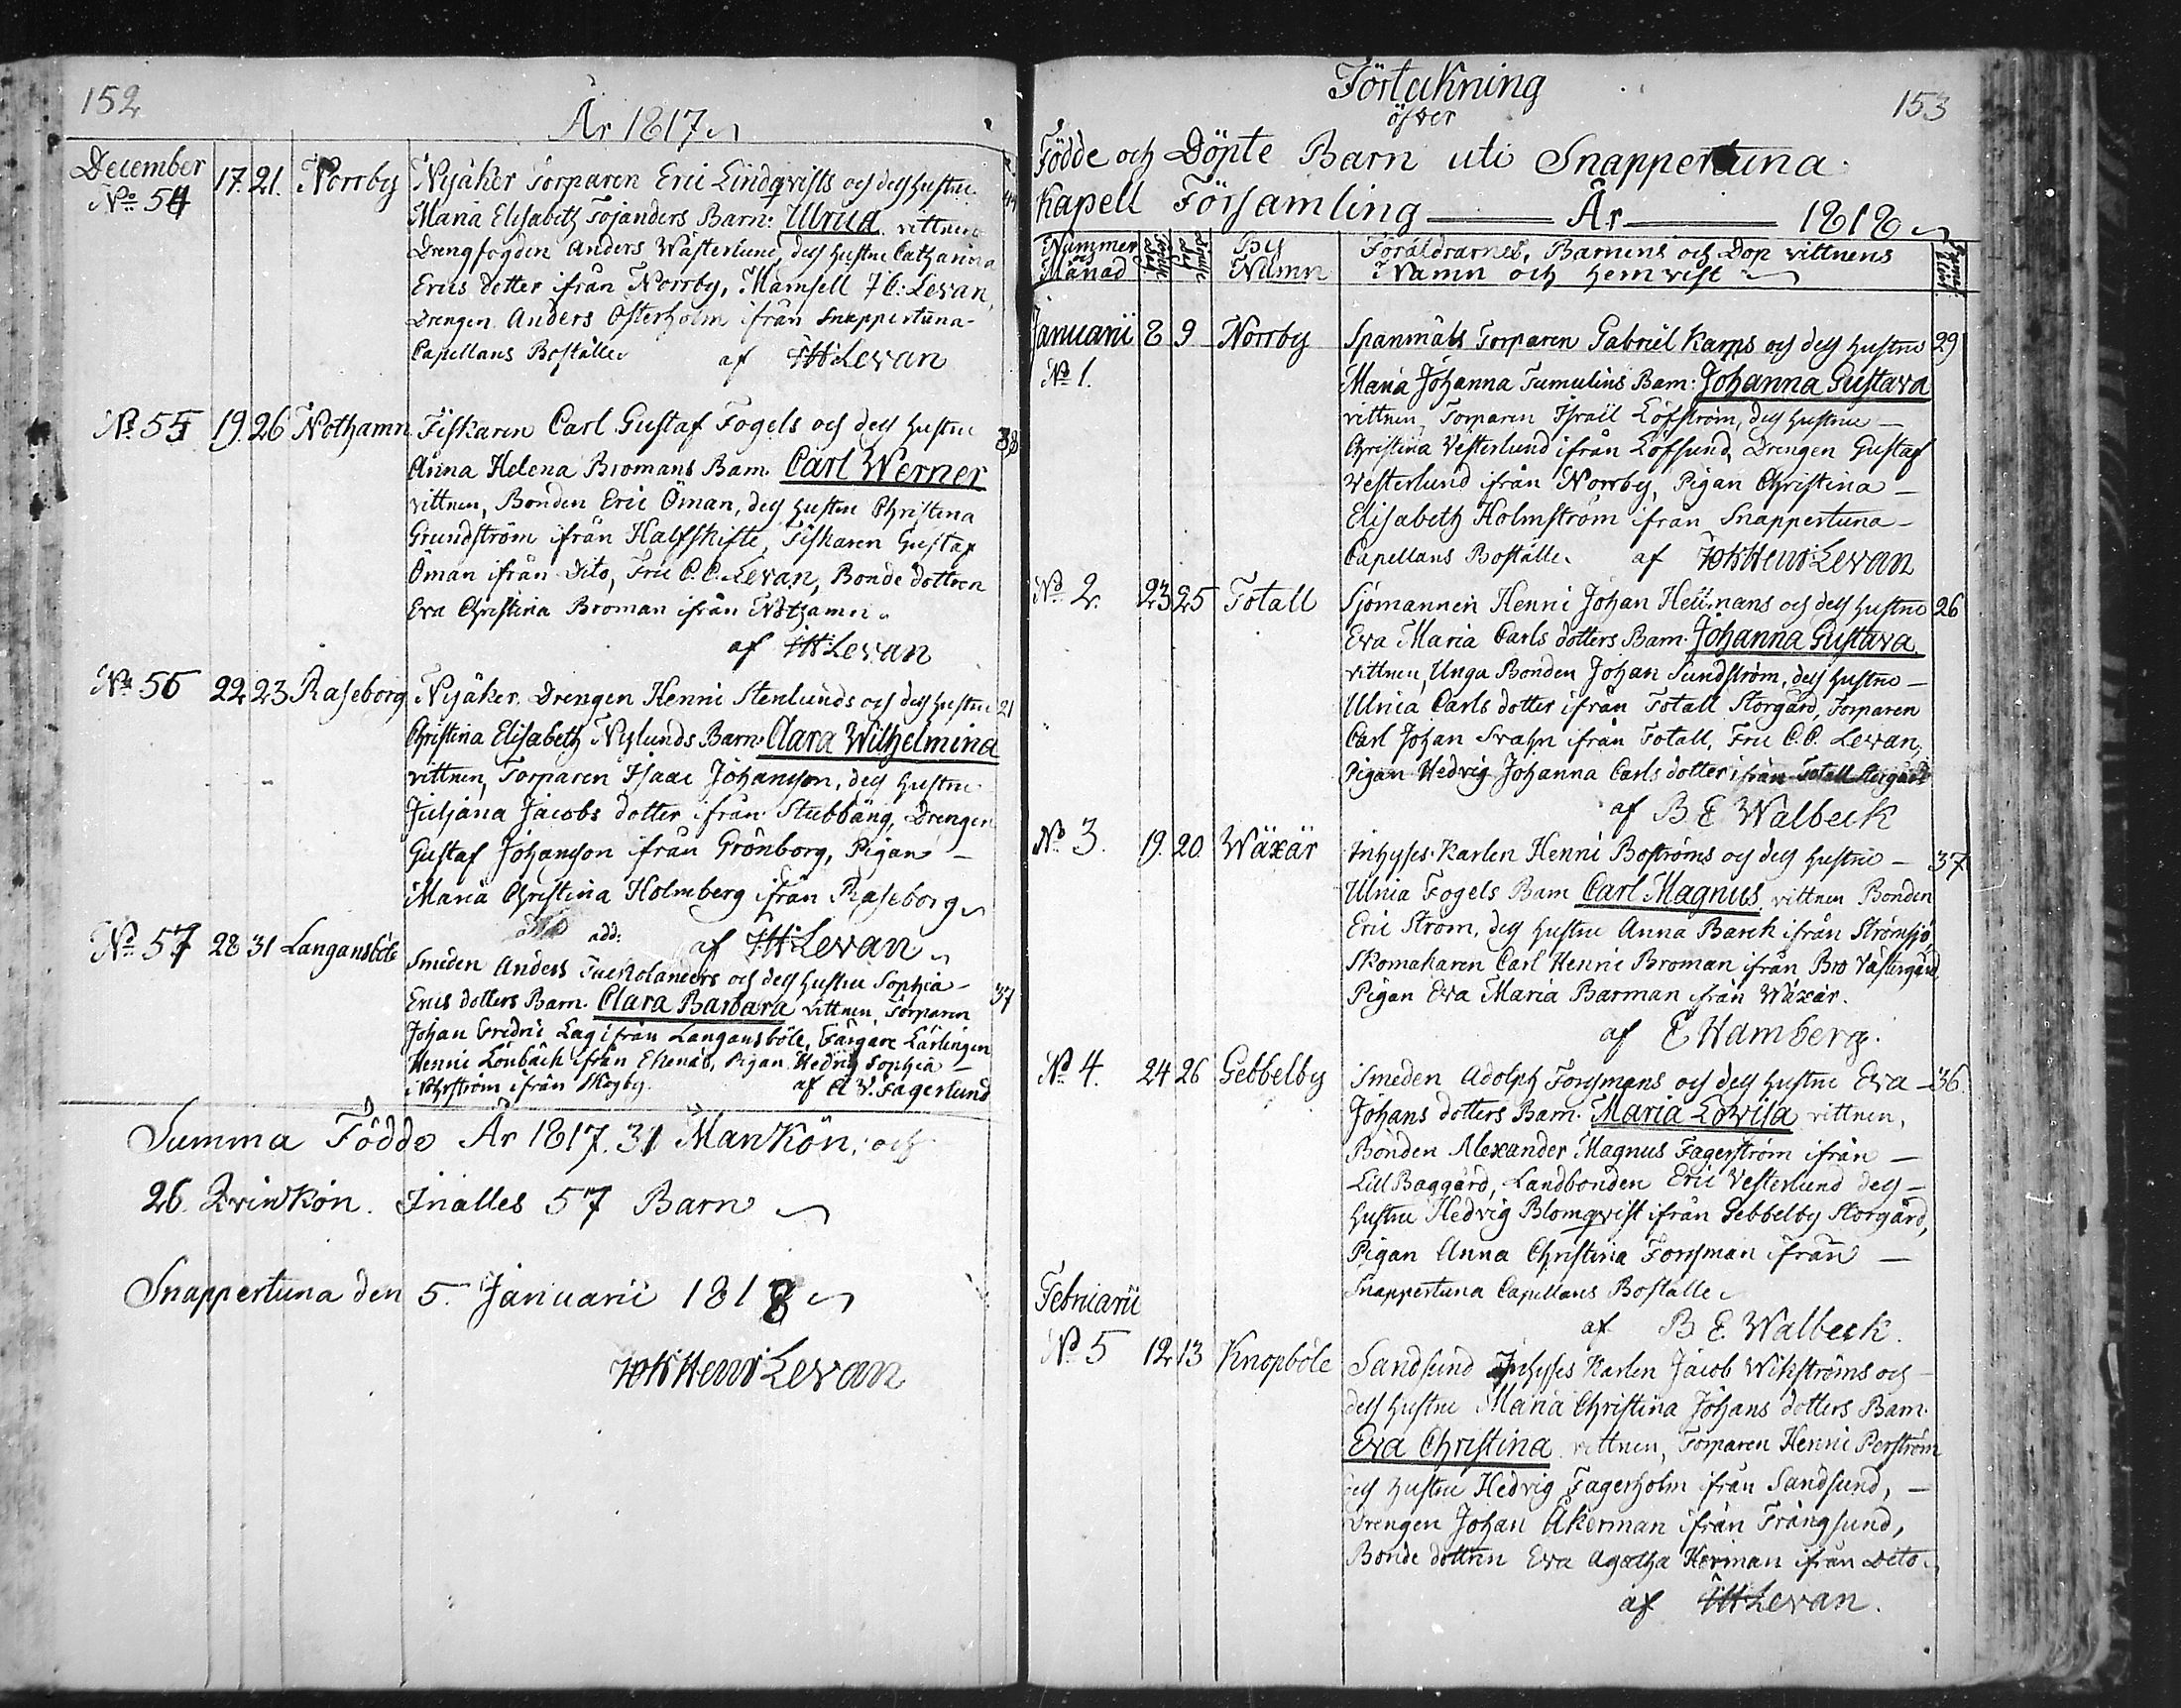 152
År 1817
December
No 54 17. 21. Norrby Nyåker Torparen Eric Lindqvists och dess hustru
Maria Elisabeth Fojanders Barn: Ulrica vittnen
Drengfogden Anders Wästerlund, dess hustru Catharina
Erics dotter ifrån Norrby, Mamsell Levan,
Drengen Anders Österholm ifrån Snappertuna
Capellans Boställe af Levan
No 55 19. 26 Nothamn Fiskaren Carl Gustaf Fogels och dess hustru 38
Anna Helena Bromans Barn: Carl Werner
vittnen, Bonden Eric Öman, dess hustru Christina
Grundström ifrån Halfskifte, Fiskaren Gustaf
Öman ifrån Dito, Fru C. C. Levan, Bonde dottren
Eva Christina Broman ifrån Nothamn.
af Levan
No 56 22 23 Raseborg Nyåker Drengen Henric Stenlunds och dess hustru 21
Christina Elisabeth Nylunds Barn: Clara Wilhelmina
vittnen, Torparen Isaac Johansson, dess hustru
Juliana Jacobs dotter ifrån Stubbäng, Drengen
Gustaf Johansson ifrån Grönborg, Pigan
Maria Christina Holmberg ifrån Raseborg
add: af Levan
No 57 28 31 Langansböle Smeden Anders och dess hustru Sophia 37
Erics dotters Barn. Clara Barbara vittnen, Torparen
Johan Fredric Lag ifrån Langansböle, Färgare Lärlingen
Henric Lönbäck ifrån Ekenäs, Pigan Hedvig Sophia
ifrån Skogby. af A. V. Fagerlund
Summa Födde År 1817. 31 Mankön, och
26 Qvinkön. Inalles 57 Barn
Snappertuna den 5. Januarii 1818
Joh Henr Levan
153
Förtekning
öfver
Födde och Döpte Barn uti Snappertuna
Kapell Församling År 1818
Nummer och Månad By Namn Föräldrarnes, Barnens och Dop vittnens
Namn och hemvist
Januarii 8 9 Norrby Spanmåls Torparen Gabriel Karps och dess hustru 29
No 1. Maria Johanna Tumulins Barn: Johanna Gustava
vittnen, Torparen Israël Löfström, dess hustru
Christina Vesterlund ifrån Löfsund, Drengen Gustaf
Vesterlund ifrån Norrby, Pigan Christina
Elisabeth Holmström ifrån Snappertuna
Capellans Boställe. af Joh Henr Levan
No 2. 23 25 Totall Sjömannen Henric Johan Hellmans och dess hustru 26
Eva Maria Carls dotters Barn. Johanna Gustava.
vittnen, Unga Bonden Johan Sundström, dess hustru
Ulrica Carls dotter ifrån Totall Storgård, Torparen
Carl Johan Svahn ifrån Totall, Fru C. C. Levan,
Pigan Hedvig Johanna Carls dotter ifrån Totall Storgård
af B E Walbeck
No 3. 19. 20. Wäxär Inhyses Karlen Henric Boströms och dess hustru 37
Ulrica Fogels Barn Carl Magnus vittnen Bonden
Eric Ström, dess hustru Anna Barck ifrån Strömsjö,
Skomakaren Carl Henric Broman ifrån Bro Västergård,
Pigan Eva Maria Barman ifrån Wäxär.
af C Hamberg.
No 4. 24 26 Gebbelby Smeden Adolph Forssmans och dess hustru Eva 36.
Johans dotters Barn. Maria Lovisa vittnen,
Bonden Alexander Magnus Fagerström ifrån
Lill Baggård, Landbonden Eric Vesterlund dess
hustru Hedvig Blomqvist ifrån Gebbelby Storgård,
Pigan Anna Christina Forssman ifrån
Snappertuna Capellans Boställe
af B E. Walbeck.
Februarii
No 5 12 13 Knopböle Sandsund Inhyses Karlen Jacob Wikströms och
dess hustru Maria Christina Johans dotters Barn.
Eva Christina vittnen, Torparen Henric Perström
dess hustru Hedvig Fagerholm ifrån Sandsund,
Drengen Johan Åkerman ifrån Trångsund,
Bonde dottren Eva Agatha Herman ifrån Dito.
af Levan.